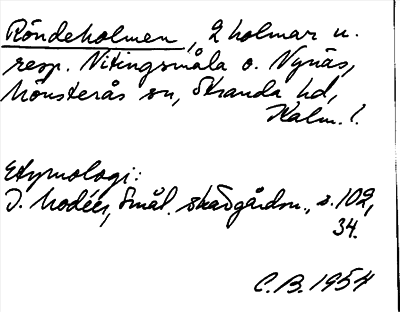 Röndeholmen, 2 holmar u.
resp. Vitingsmåla o. Nynäs,
Mönsterås sn, Stranda hd,
Kalm. l.
Etymologi:
I. Modéer, Smål. skärgårdsn., s. 102,
34.
C.B. 1954